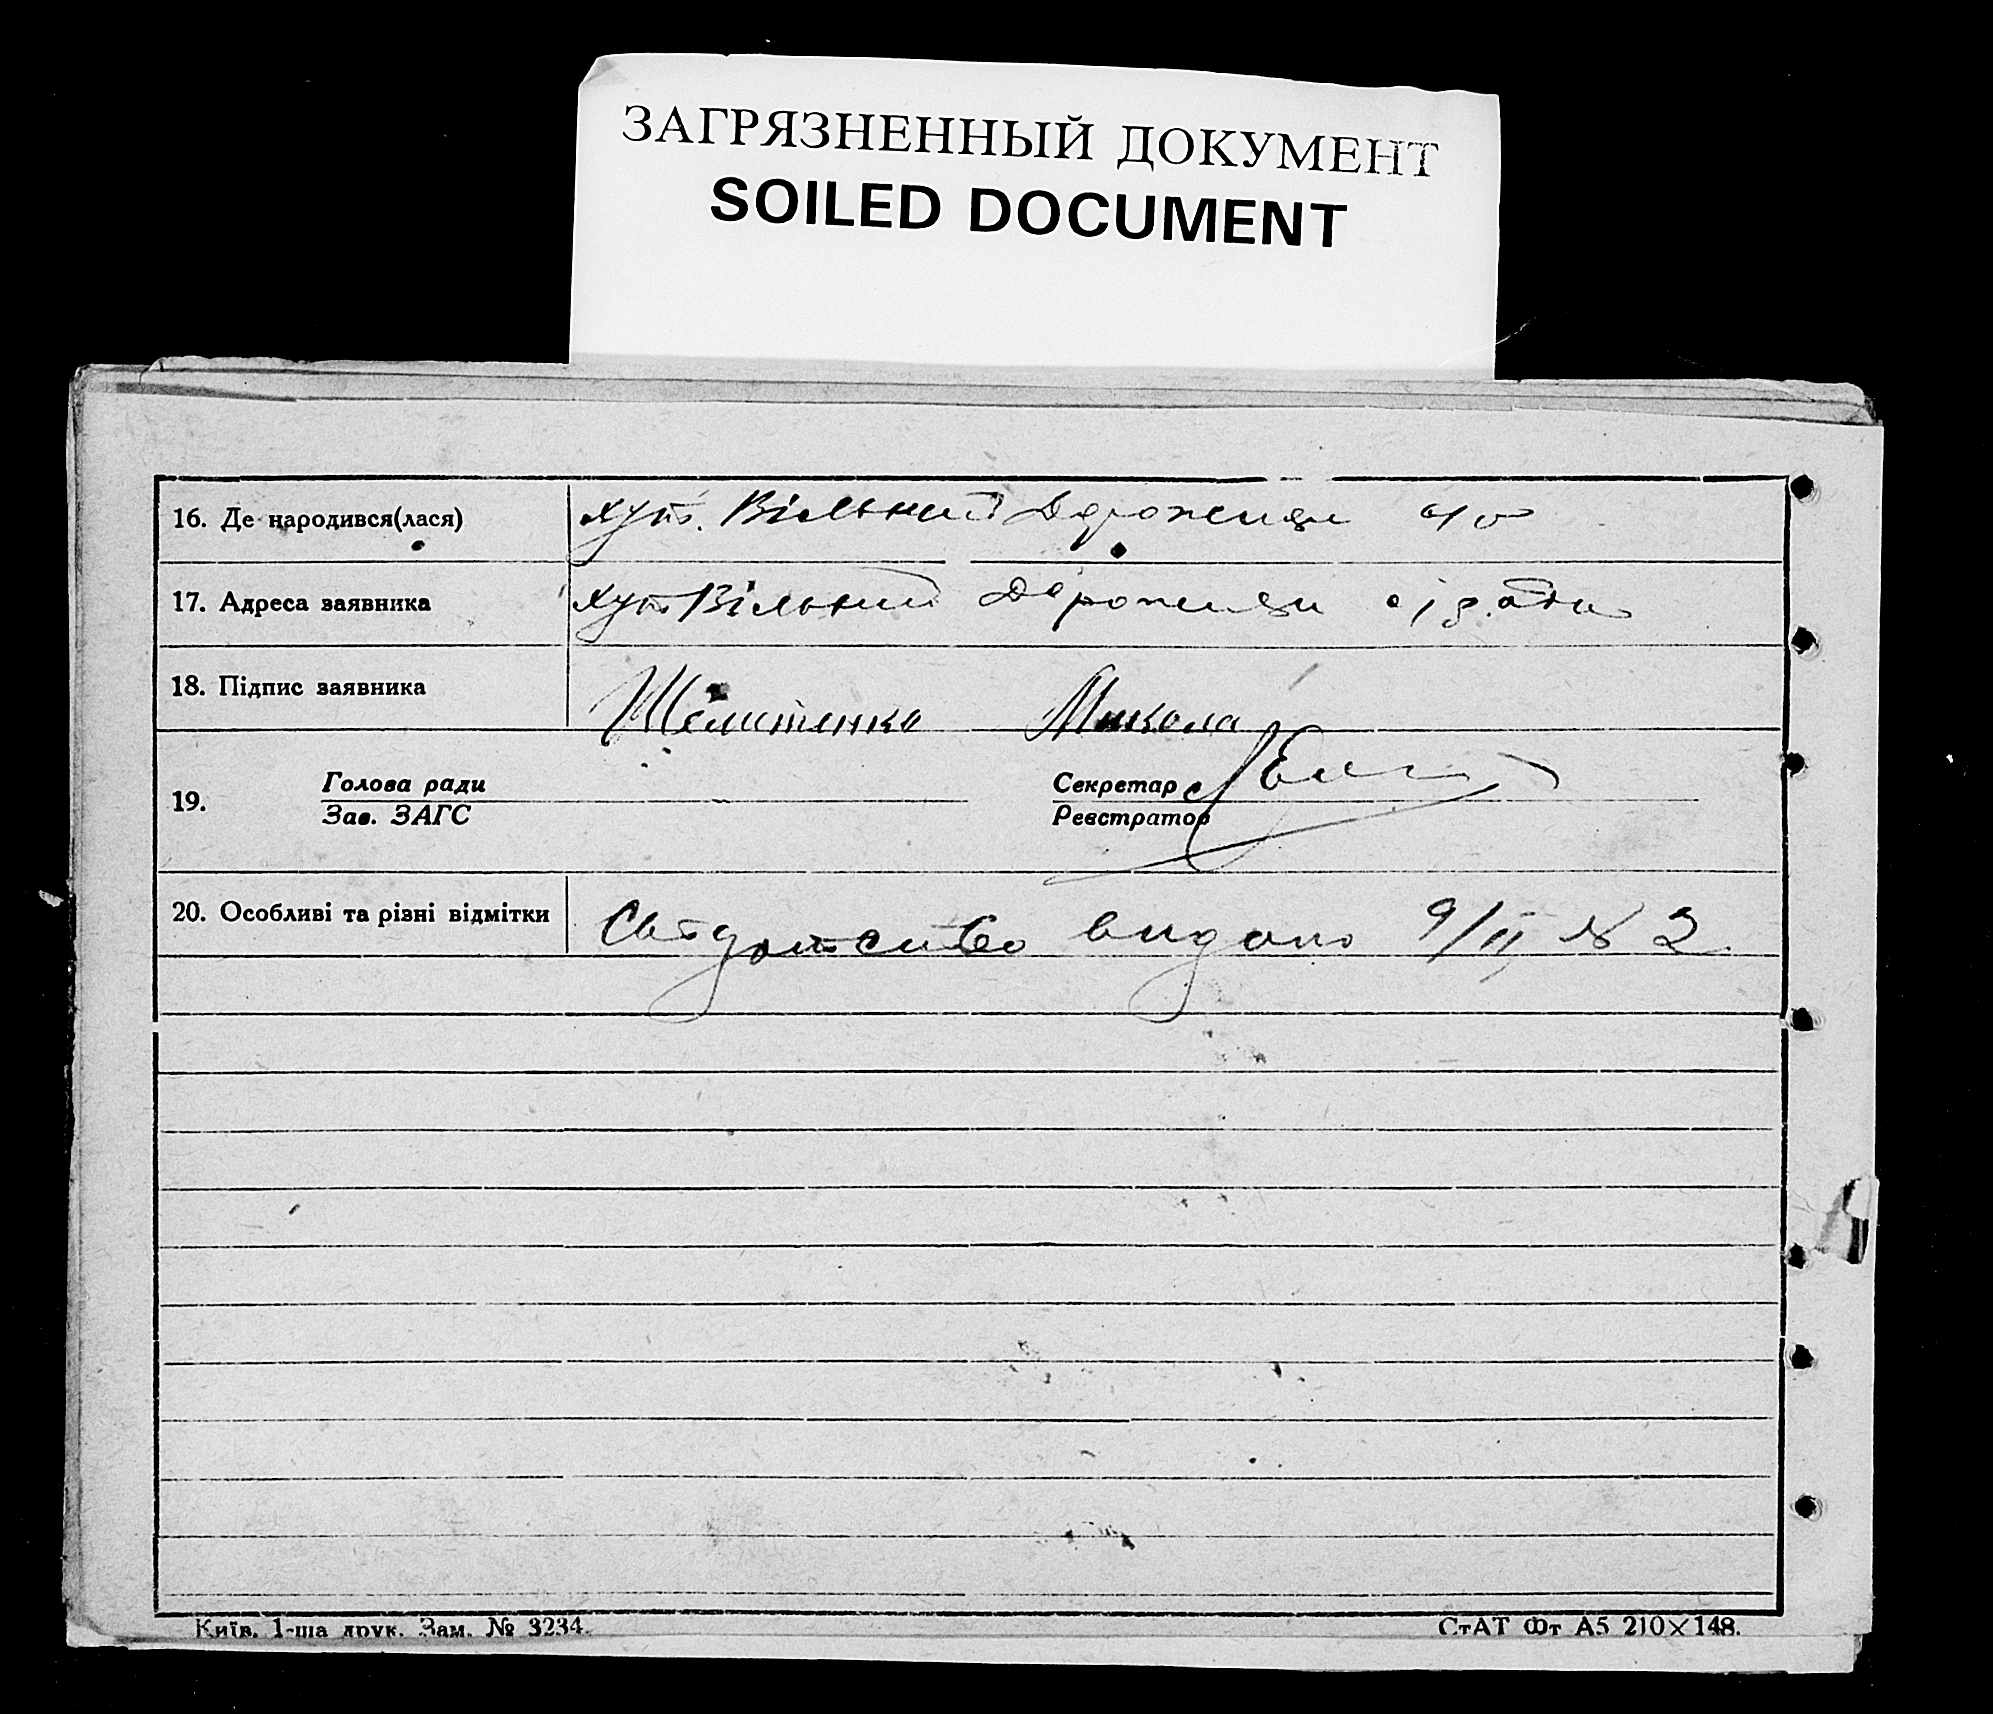 ЗАГРЯЗНЕННЫЙ ДОКУМЕНТ
SOILED DOCUMENT
16. Де народився(лася) хут. Вільний
17. Адреса заявника хут. Вільний
18. Підпис заявника Микола
19. Голова ради Секретар
Зав. ЗАГС Реєстратор
20. Особливі та різні відмітки видано 9/II № 2
Київ. 1-ша друк. Зам. № 3234. СтАТ Фт А5 210×148.